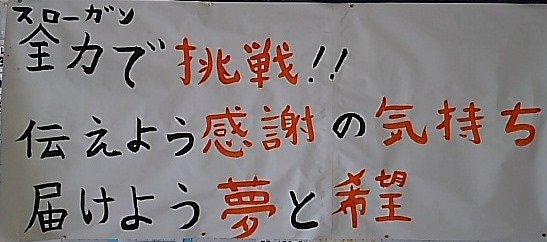 スローガン
全力で挑戦!!
伝えよう感謝の気持ち
届けよう夢と希望